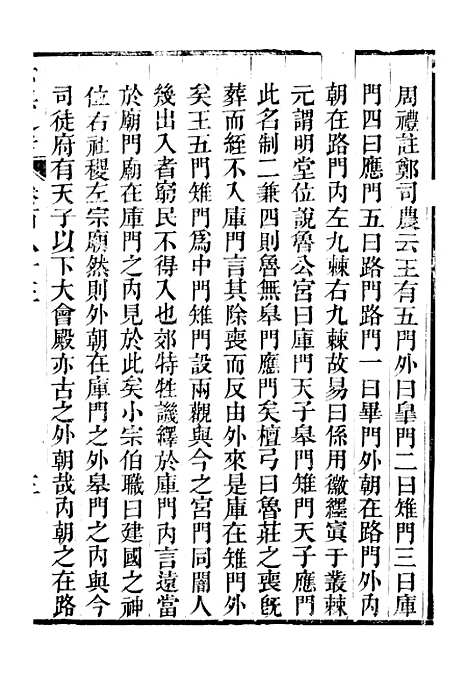 周禮註鄭司農云王有五門外曰皐門二曰雉門三曰庫
門四曰應門五曰路門路門一曰畢門外朝在路門外內
朝在路門內左九棘右九棘故易曰係用徽纆寘于叢棘
元謂明堂位說魯公宮曰庫門天子皐門雉門天子應門
此名制二兼四則魯無皋門應門矣檀弓曰魯莊之喪旣
葬而絰不入庫門言其除喪而反由外來是庫在雉門外
矣王五門雉門爲中門雉門設兩觀與今之宮門同閽人
幾出入者窮民不得入也郊特牲譏繹於庫門內言遠當
於廟門廟在庫門之內見於此矣小宗伯職曰建國之神
位右社稷左宗廟然則外朝在庫門之外皋門之內與今
司徒府有天子以下大會殿亦古之外朝哉內朝之在路